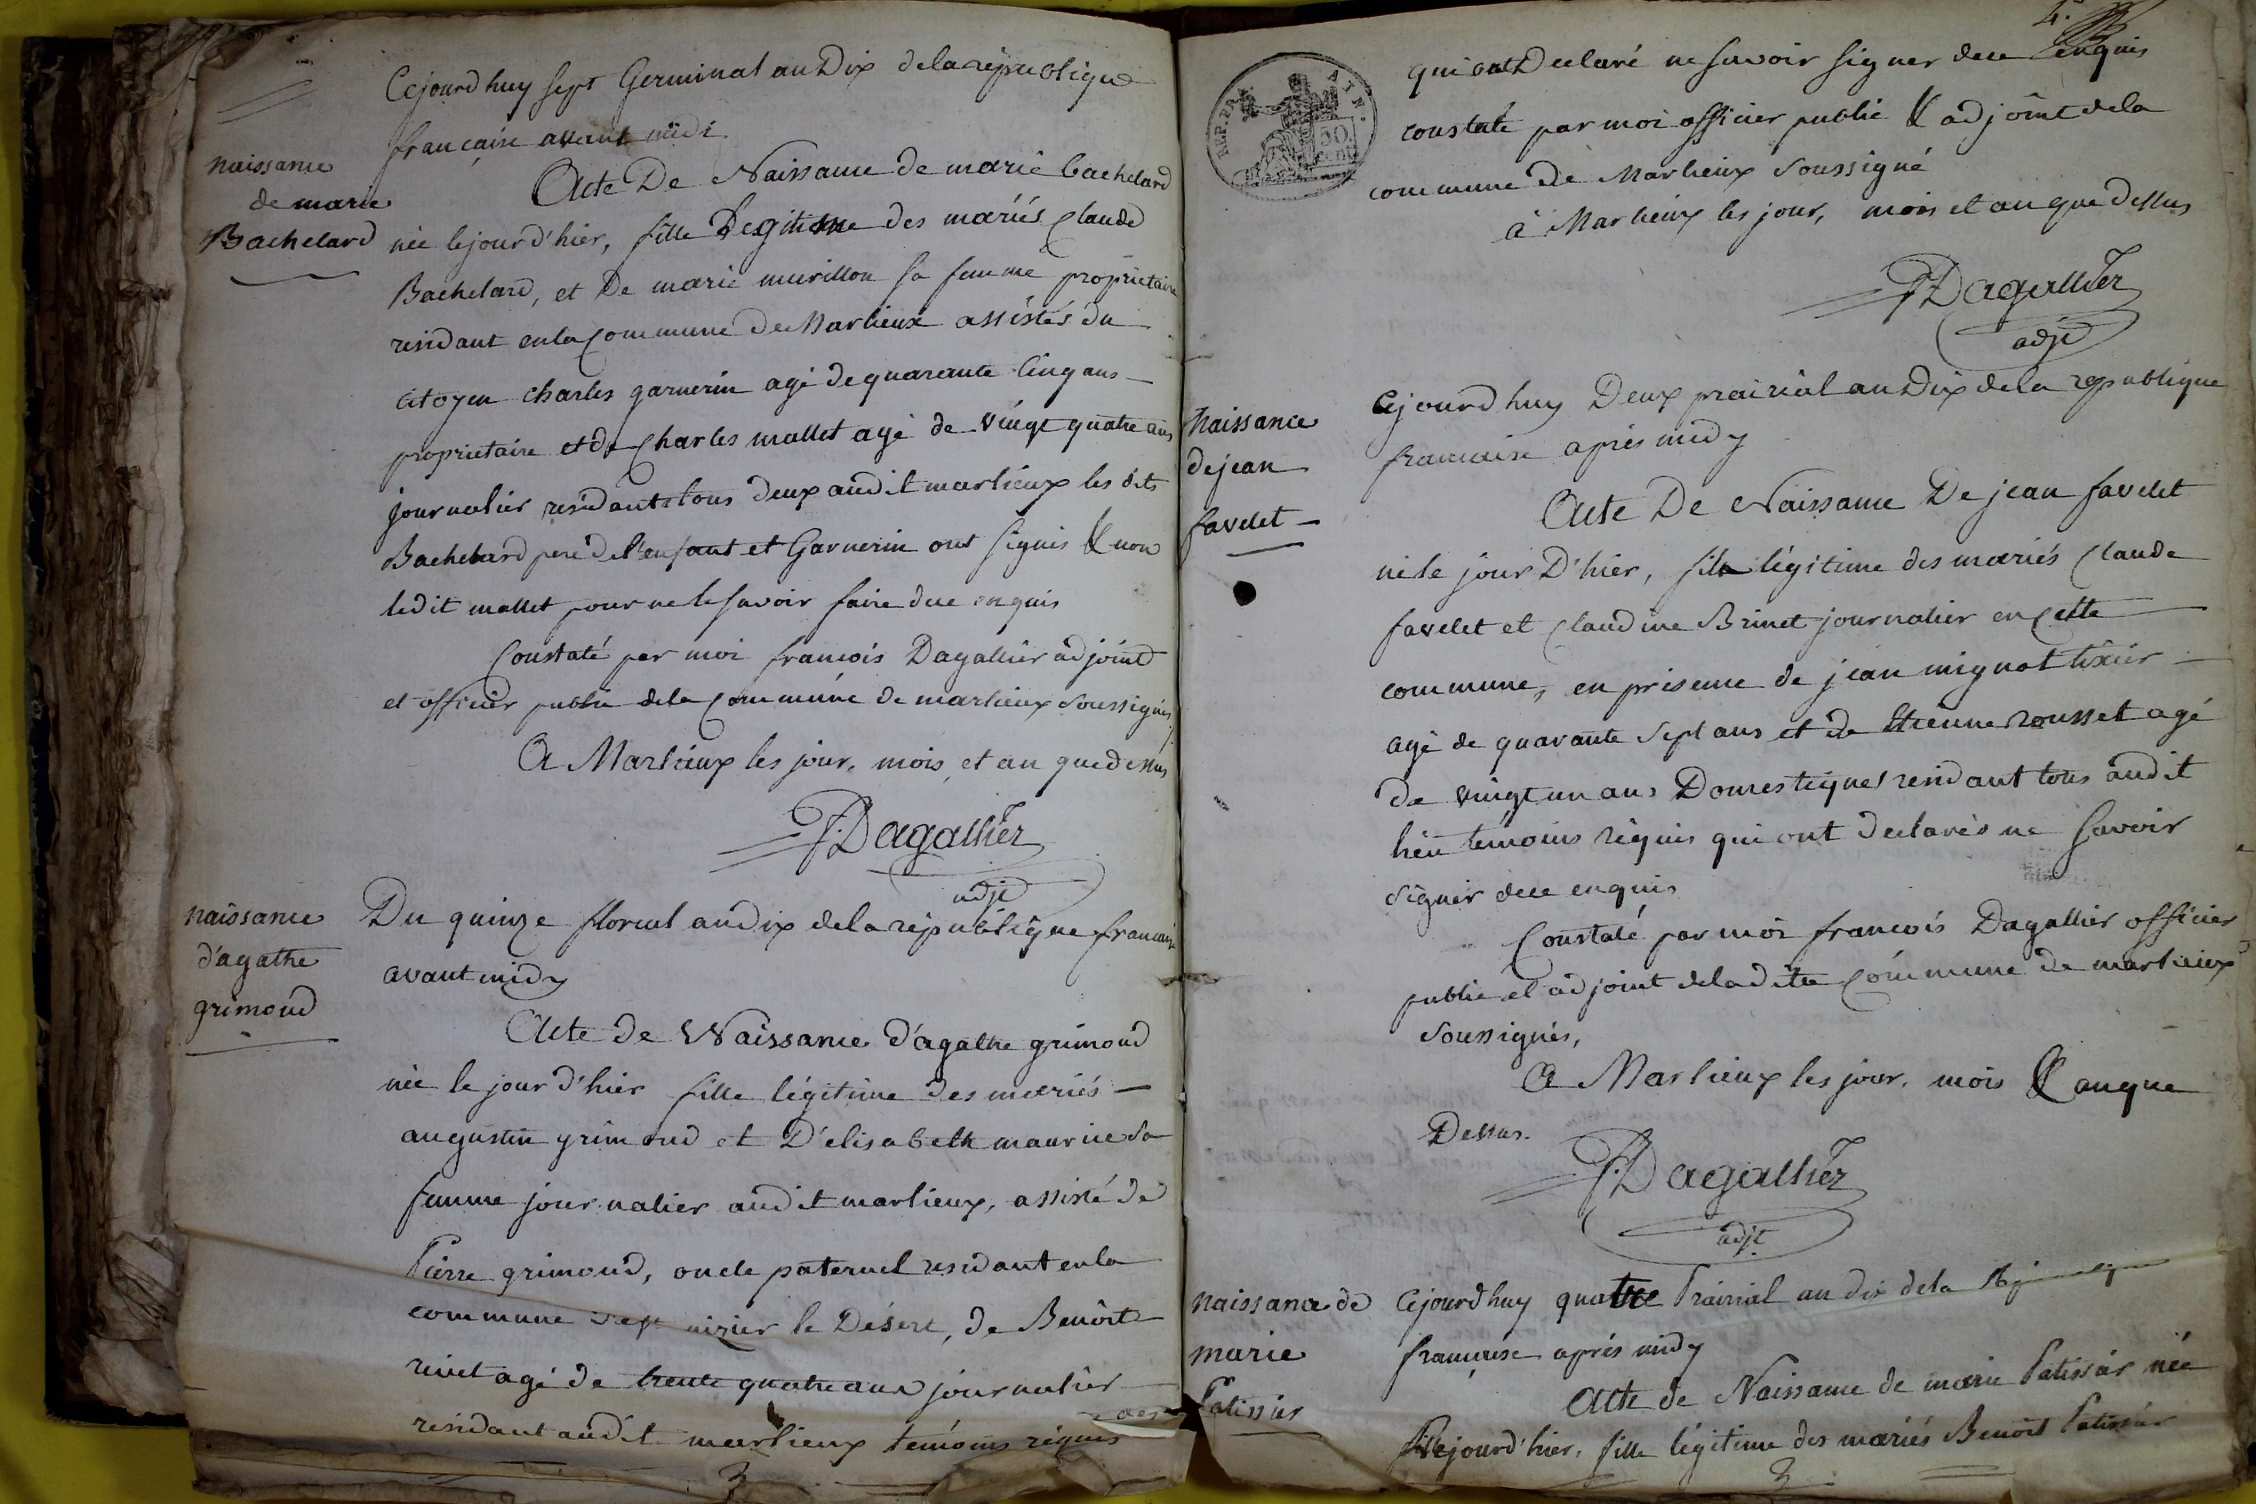 Cejourd'huy sept Germinal an Dix de la république
française avant midi
naissance
de marie
Bachelard
Acte De Naissance de marie bachelard
née le jour d'hier, fille Legitime des mariés Claude
Bachelard, et De marie murillon sa femme proprietaire
residant en la Commune de Marlieux assistés du
citoyen charles garnerin agé de quarante Cinq ans
proprietaire et de Charles mallet agé de vingt quatre ans
journalier residants tous deux audit marlieux les dits
Bachelard pere de l'enfant et Garnerin ont signés & non
ledit mallet pour ne le savoir faire de ce enquis
Constaté par moi francois Dagallier adjoint
et officier public de la Commune de marlieux soussignés
A Marlieux les jour, mois, et an que dessus
F. Dagallier
adjt
naissance
d'agathe
grimoud
Du quinze floreal an dix de la république francaise
avant midy
Acte de Naissance d'agathe grimoud
née le jour d'hier fille légitime des mariés
augustin grimoud et D'elisabeth maurice sa
femme journalier audit marlieux, assisté de
Pierre grimoud, oncle paternel residant en la
commune de st nizier le Désert, de Benoit
rivet agé de trente quatre ans journalier
residant audit marlieux temoins requis
3
4.e
REP. FRA.
50
cent
qui ont Declaré ne savoir signer de ce enquis
constate par moi officier public & adjoint de la
commune de Marlieux soussigné
à Marlieux les jour, mois et an que dessus
F. Dagallier
adjt
Naissance
de jean
favelet
Cejourd'huy Deux prairial an Dix de la republique
francaise après midy
Acte De Naissance De jean favelet
né le jour D'hier, fils légitime des mariés Claude
favelet et Claudine Brinet journalier en Cette
commune, en presence de jean mignot tixier
agé de quarante sept ans et de Etienne rousset agé
de vingt un ans Domestiques residant tous audit
lieu temoins réquis qui ont declarés ne savoir
signer de ce enquis
Constaté par moi francois Dagallier officier
public et adjoint de la dite Commune de marlieux
soussignés,
A Marlieux les jour, mois & an que
Dessus.
F. Dagallier
adjt
naissance de
marie
Patissier
Cejourd'huy quatre Prairial an dix de la République
française après midy
Acte de Naissance de marie Patissier née
le jourd'hier, fille légitime des mariés Benoit Patissier
3